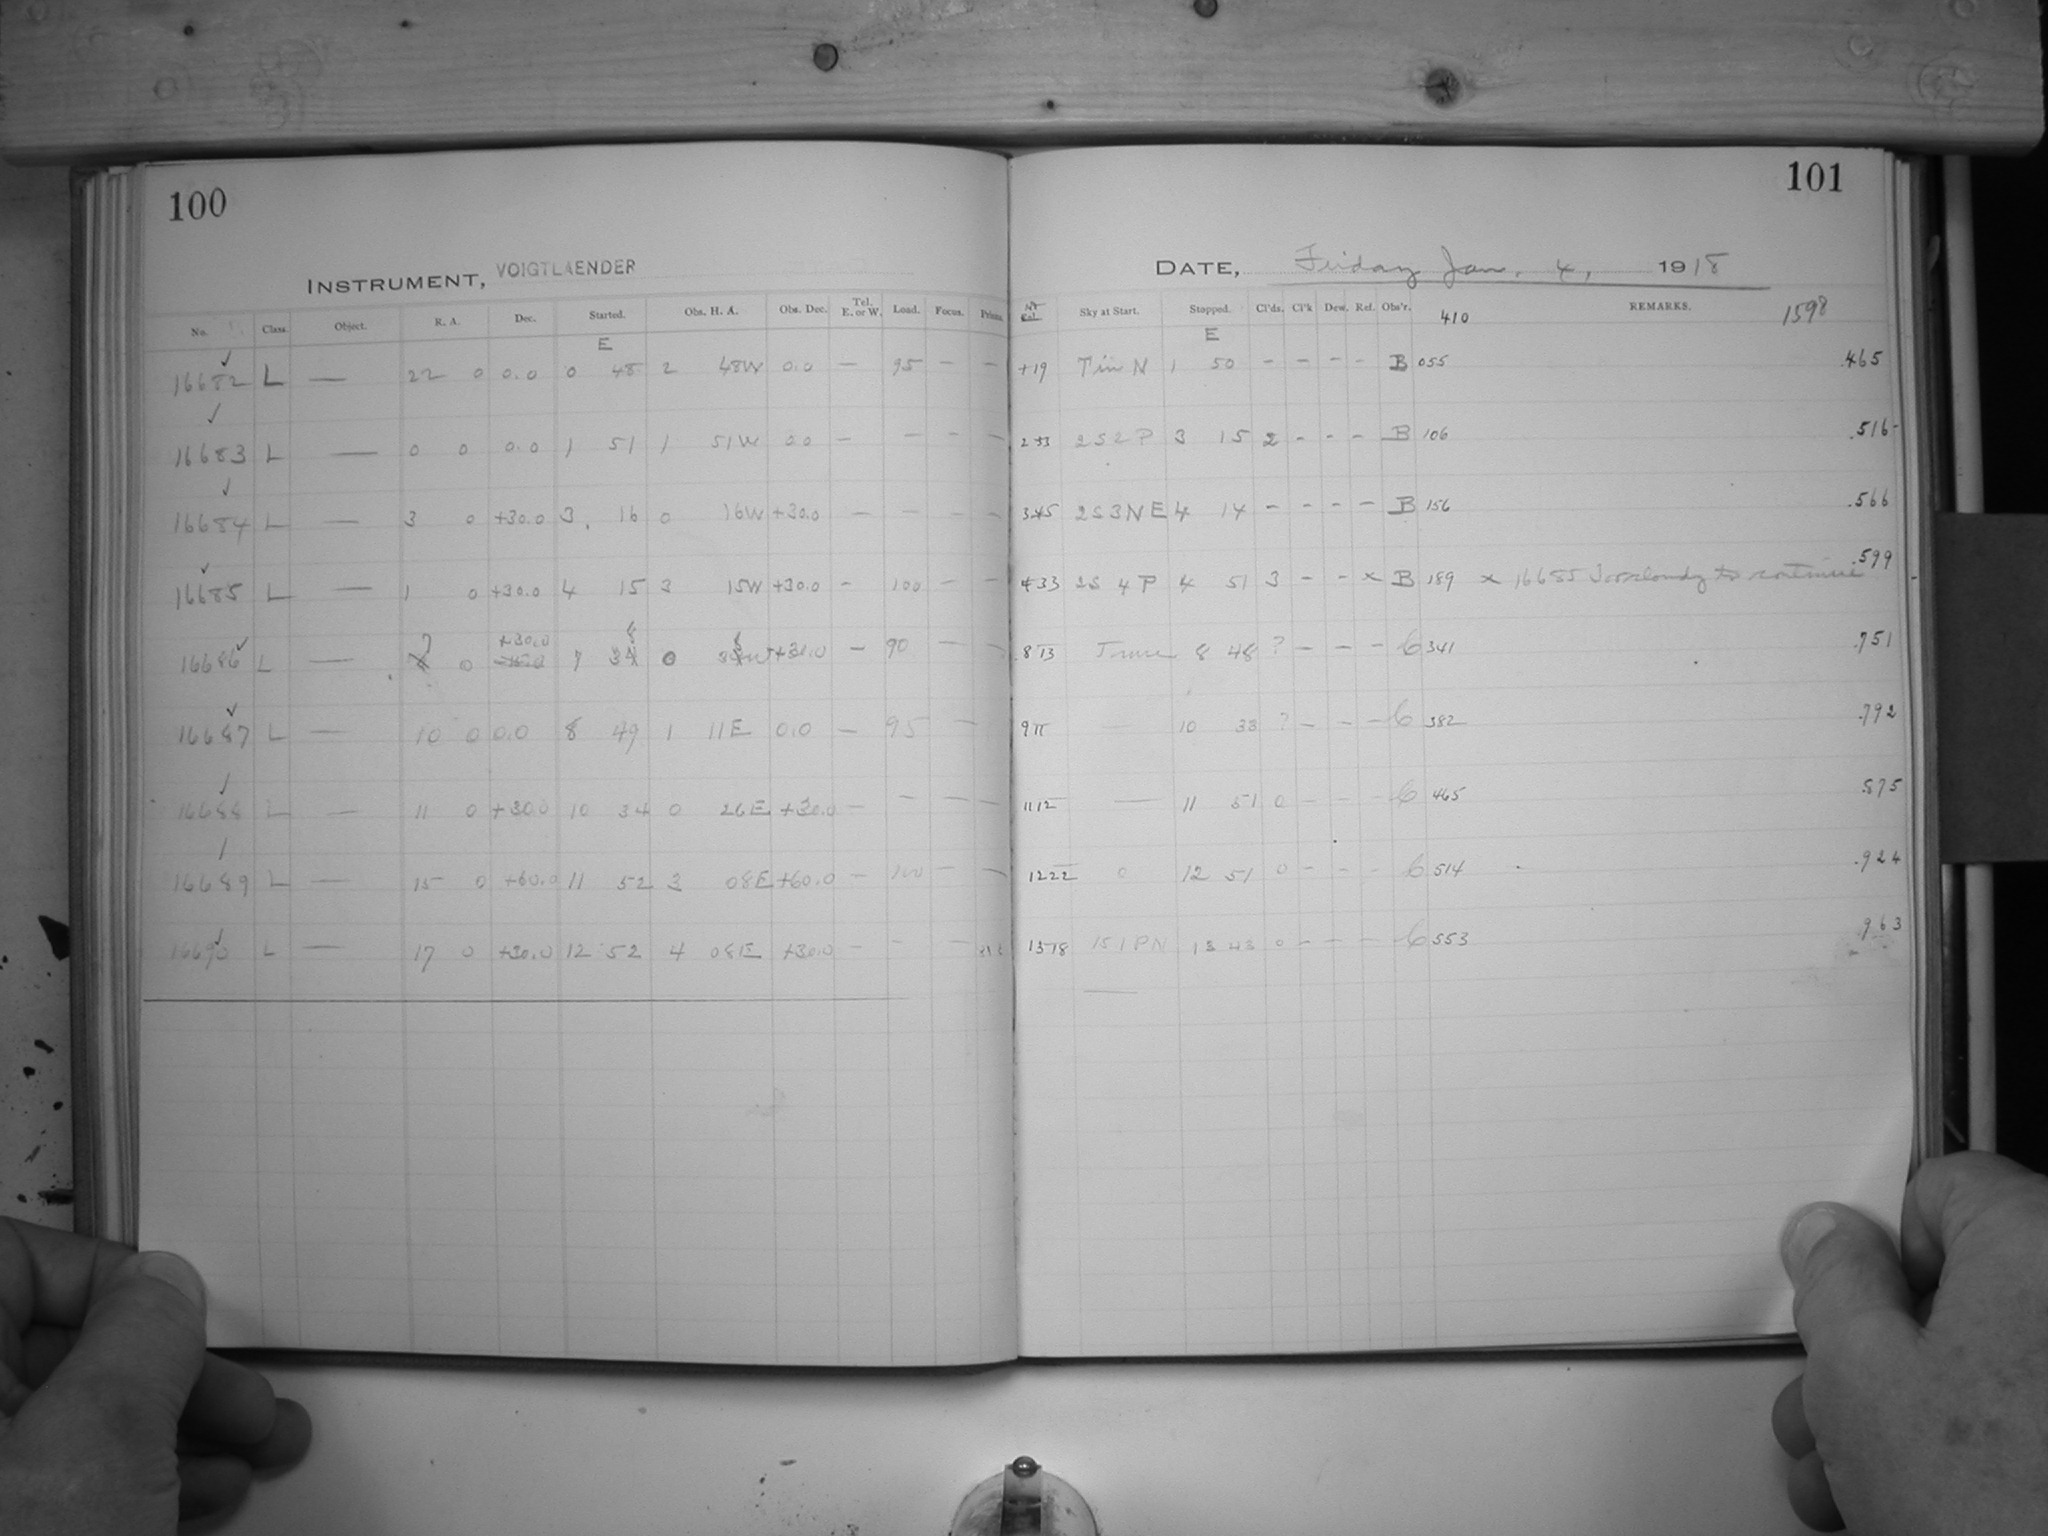 100
INSTRUMENT, VOIGTLAENDER
No. Class. Object. R. A. Dec. Started. Obs. H. A. Obs. Dec. Tel. E. or W. Load. Focus. Prisms.
E
16682 L — 22 0 0.0 0 48 2 48W 0.0 — 95 — —
16683 L — 0 0 0.0 1 51 1 51W 0.0 — — — —
16684 L — 3 0 +30.0 3 16 0 16W +30.0 — — — —
16685 L — 1 0 +30.0 4 15 3 15W +30.0 — 100 — —
16686 L — 7 0 +30.0 7 38 0 38W +30.0 — 90 — —
16687 L — 10 0 0.0 8 49 1 11E 0.0 — 95 —
16688 L — 11 0 +30.0 10 34 0 26E +30.0 — — — —
16689 L — 15 0 +60.0 11 52 3 08E +60.0 — 100 — —
16690 L — 17 0 +30.0 12 52 4 08E +30.0 — — —
101
DATE, Friday Jan. 4, 1918
Sky at Start. Stopped. Cl'ds. Cl'k Dew. Ref. Obs'r. 410 REMARKS. 1598
E
+19 1 50 — — — — B 055 .465
2 33 2S2P 3 15 2 - - - B 106 .516
345 2S3NE 4 14 - - - - B 156 .566
433 2S 4P 4 51 3 - - x B 189 x 16685 Too cloudy to continue .599
813 8 48 ? — — — C 341 .751
911 — 10 33 ? — — — C 382 .792
1112 — 11 51 0 - - - C 465 .875
1222 0 12 51 0 - - - C 514 .924
1318 1S1PN 13 43 0 - - - C 553 .963